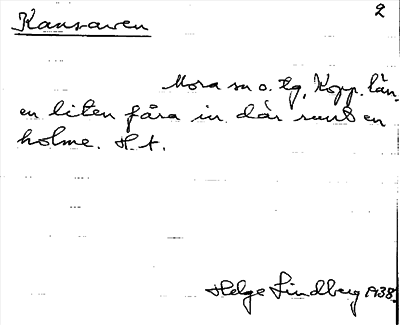 2
Kansaren
Mora sn o. tg, Kopp. län.
en liten fåra in där runt en
holme. H. t.
Helge Lindberg 1938.